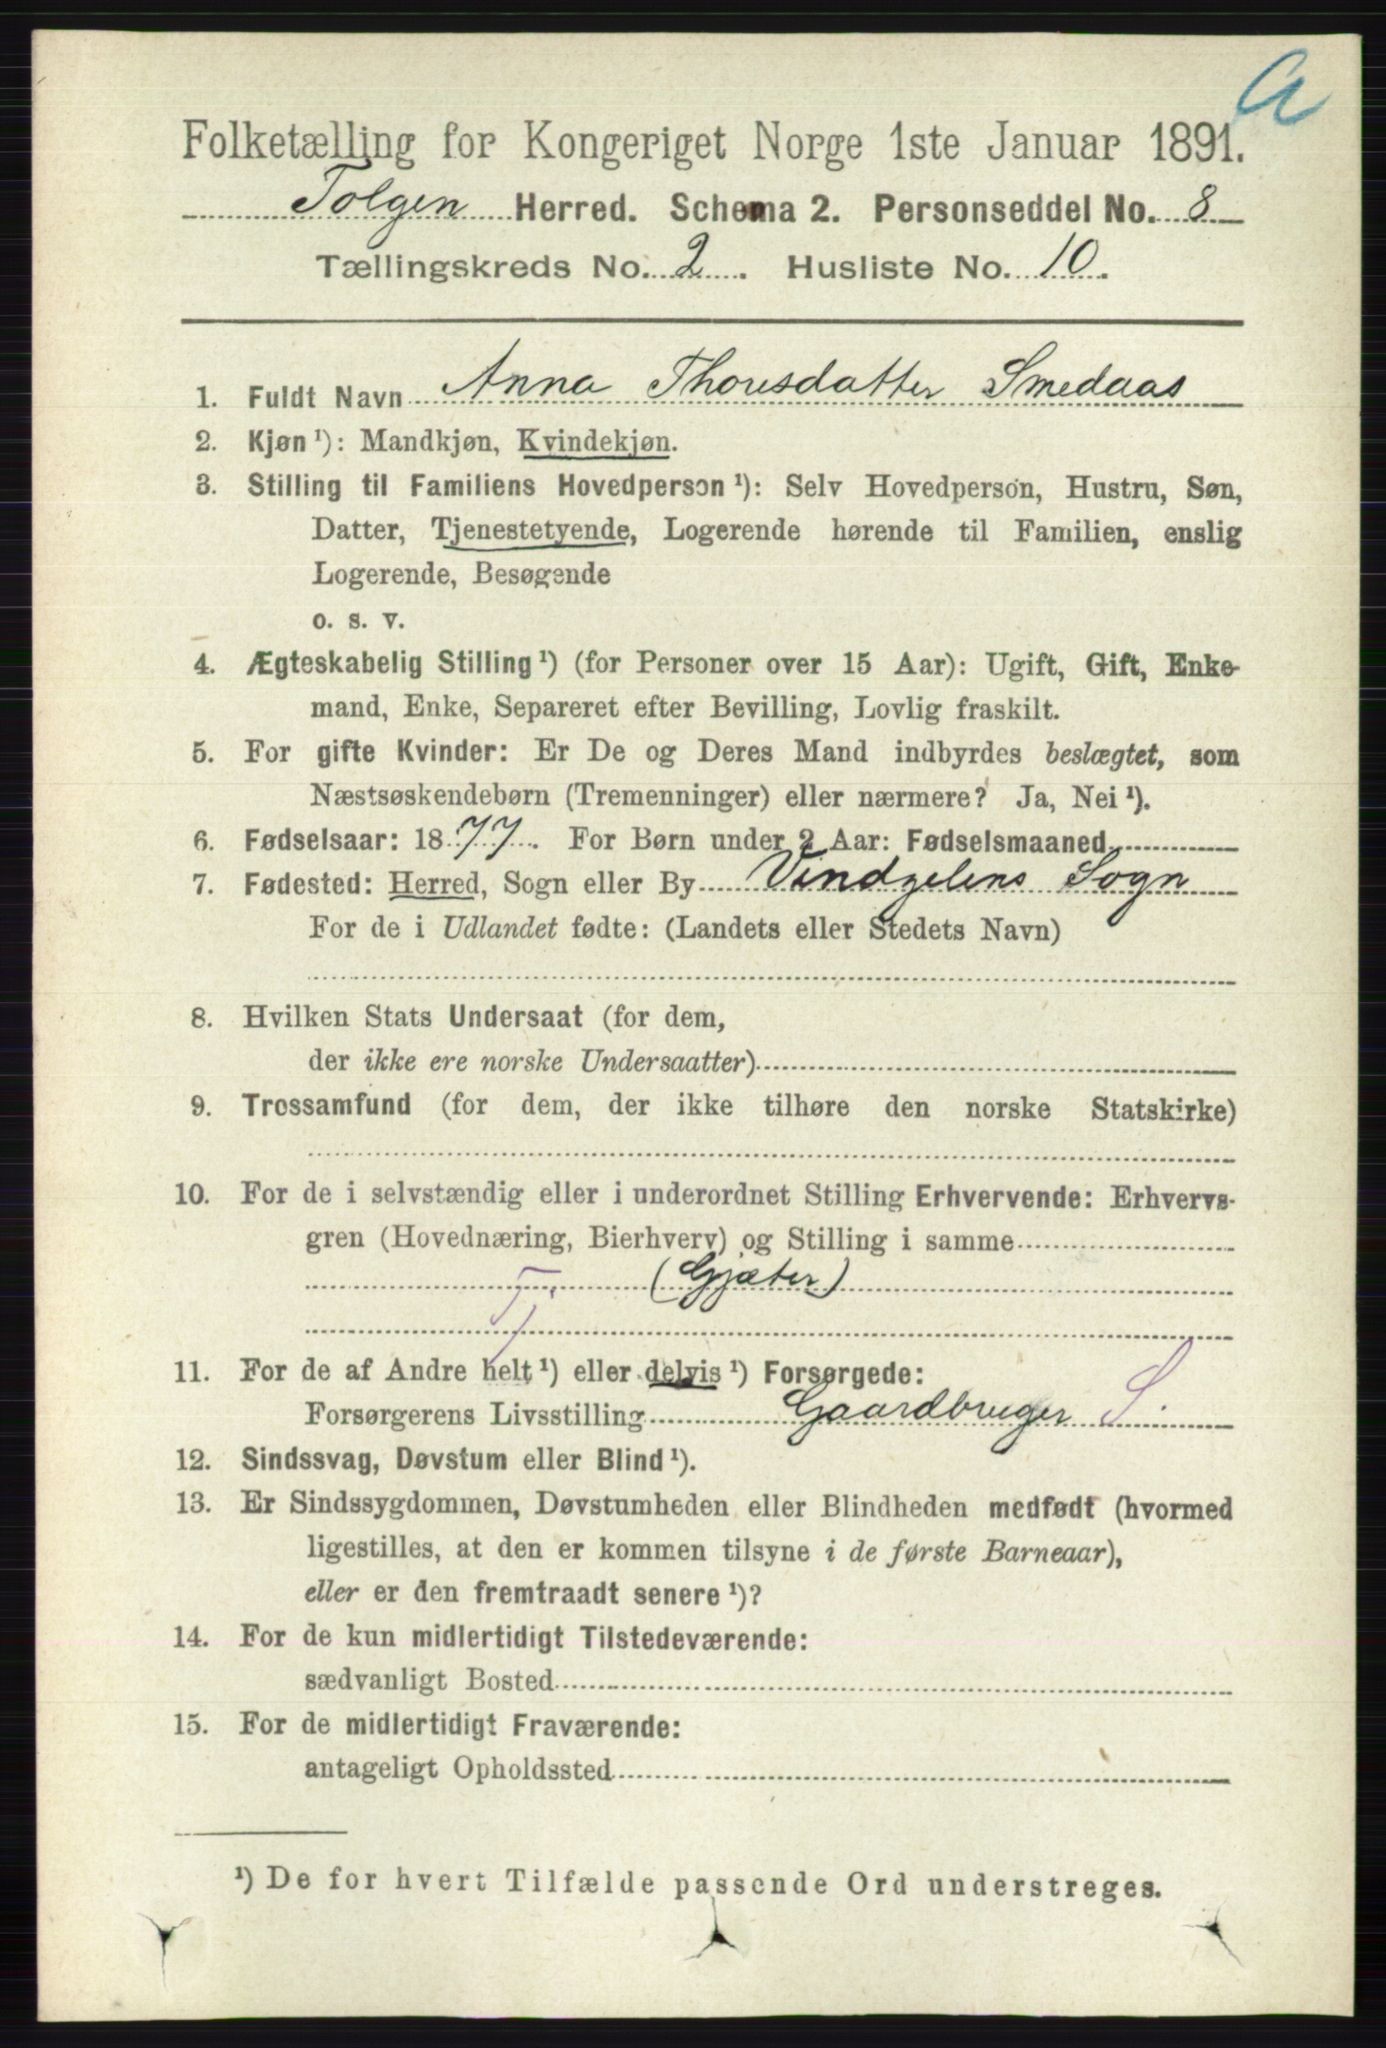 a
Folketælling for Kongeriget Norge 1ste Januar 1891.
Tolgen Herred. Schema 2. Personseddel No. 8
Tællingskreds No. 2. Husliste No. 10.
1. Fuldt Navn Anna Thoresdatter Smedaas
2. Kjøn¹): Mandkjøn, Kvindekjøn.
3. Stilling til Familiens Hovedperson¹): Selv Hovedperson, Hustru, Søn,
Datter, Tjenestetyende, Logerende hørende til Familien, enslig
Logerende, Besøgende
o. s. v.
4. Ægteskabelig Stilling¹) (for Personer over 15 Aar): Ugift, Gift, Enke-
mand, Enke, Separeret efter Bevilling, Lovlig fraskilt.
5. For gifte Kvinder: Er De og Deres Mand indbyrdes beslægtet, som
Næstsøskendebørn (Tremenninger) eller nærmere? Ja, Nei¹).
6. Fødselsaar: 1877. For Børn under 2 Aar: Fødselsmaaned
7. Fødested: Herred, Sogn eller By Vindgelens Sogn
For de i Udlandet fødte: (Landets eller Stedets Navn)
8. Hvilken Stats Undersaat (for dem,
der ikke ere norske Undersaatter)
9. Trossamfund (for dem, der ikke tilhøre den norske Statskirke)
10. For de i selvstændig eller i underordnet Stilling Erhvervende: Erhvervs-
gren (Hovednæring, Bierhverv) og Stilling i samme
Tj. (Gjæter)
11. For de af Andre helt¹) eller delvis¹) Forsørgede:
Forsørgerens Livsstilling Gaardbruger S.
12. Sindssvag, Døvstum eller Blind¹).
13. Er Sindssygdommen, Døvstumheden eller Blindheden medfødt (hvormed
ligestilles, at den er kommen tilsyne i de første Barneaar),
eller er den fremtraadt senere¹)?
14. For de kun midlertidigt Tilstedeværende:
sædvanligt Bosted
15. For de midlertidigt Fraværende:
antageligt Opholdssted
¹) De for hvert Tilfælde passende Ord understreges.